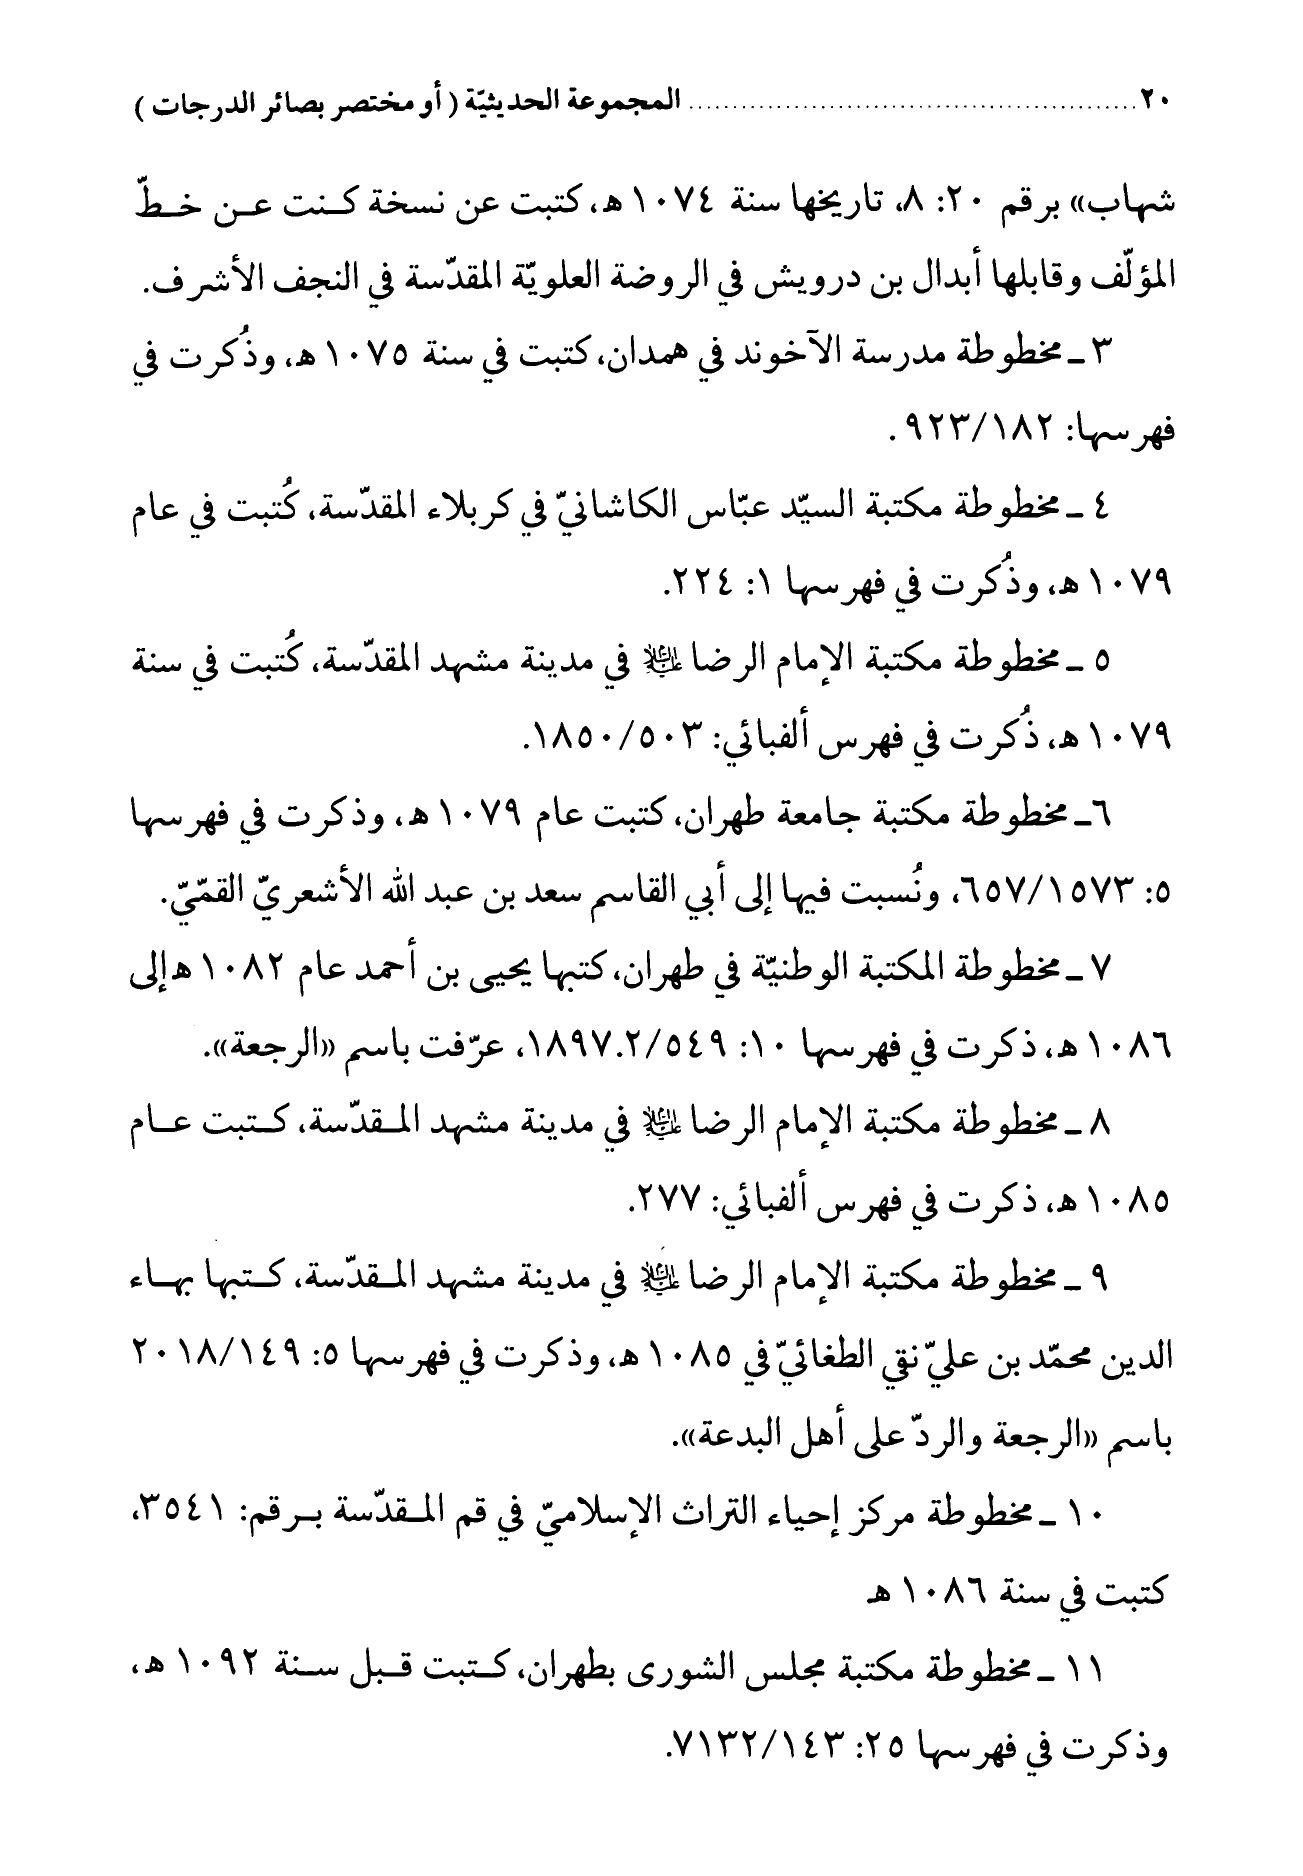 ٢٠ ........................................ المجموعة الحديثيّة ( أو مختصر بصائر الدرجات )
شهاب» برقم ٢٠: ٨، تاريخها سنة ١٠٧٤ هـ، كتبت عن نسخة كتبت عن خطّ
المؤلّف وقابلها أبدال بن درويش في الروضة العلويّة المقدّسة في النجف الأشرف.
٣ ـ مخطوطة مدرسة الآخوند في همدان، كتبت في سنة ١٠٧٥ هـ، وذُكرت في
فهرسها: ٩٢٣/١٨٢ .
٤ ـ مخطوطة مكتبة السيّد عبّاس الكاشانيّ في كربلاء المقدّسة، كُتبت في عام
١٠٧٩ هـ، وذُكرت في فهرسها ١: ٢٢٤.
٥ ـ مخطوطة مكتبة الإمام الرضا عليه السلام في مدينة مشهد المقدّسة، كُتبت في سنة
١٠٧٩ هـ، ذُكرت في فهرس ألفبائي: ١٨٥٠/٥٠٣.
٦ـ مخطوطة مكتبة جامعة طهران، كتبت عام ١٠٧٩ هـ، وذكرت في فهرسها
٥: ٦٥٧/١٥٧٣، ونُسبت فيها إلى أبي القاسم سعد بن عبد الله الأشعريّ القمّيّ.
٧ ـ مخطوطة المكتبة الوطنيّة في طهران، كتبها يحيى بن أحمد عام ١٠٨٢ هـ إلى
١٠٨٦ هـ، ذكرت في فهرسها ١٠: ١٨٩٧.٢/٥٤٩، عرّفت باسم «الرجعة».
٨ ـ مخطوطة مكتبة الإمام الرضا عليه السلام في مدينة مشهد المـقدّسة، كـتبت عـام
١٠٨٥ هـ، ذكرت في فهرس ألفبائي: ٢٧٧.
٩ ـ مخطوطة مكتبة الإمام الرضا عليه السلام في مدينة مشهد المـقدّسة، كـتبها بهـاء
الدين محمّد بن عليّ نقي الطغائيّ في ١٠٨٥ هـ، وذكرت في فهرسها ٥: ٢٠١٨/١٤٩
باسم «الرجعة والردّ على أهل البدعة».
١٠ ـ مخطوطة مركز إحياء التراث الإسلاميّ في قم المـقدّسة بـرقم: ٣٥٤١،
كتبت في سنة ١٠٨٦ هـ
١١ ـ مخطوطة مكتبة مجلس الشورى بطهران، كـتبت قـبل سـنة ١٠٩٢ هـ،
وذكرت في فهرسها ٢٥: ٧١٣٢/١٤٣.